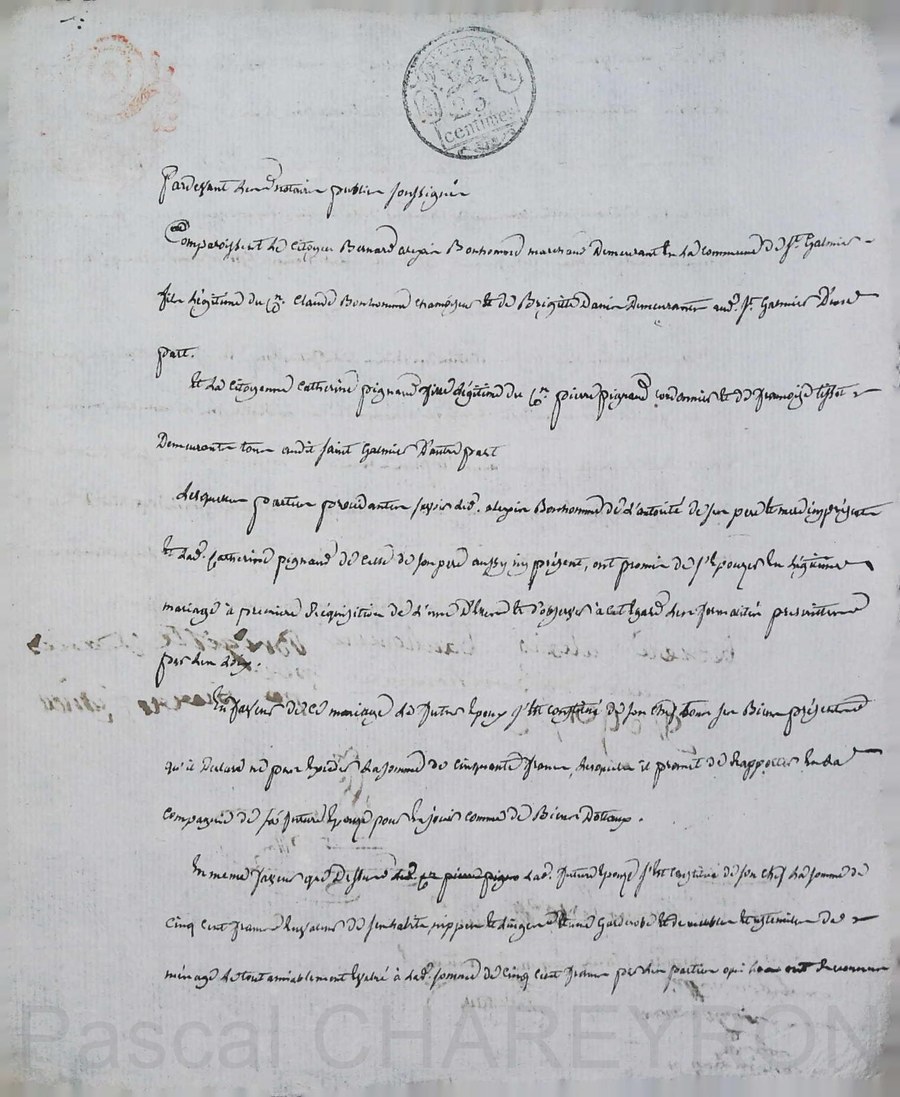 25
centimes
Pardevant le notaire public soussigné
Comparoissent le citoyen Bernard alexis Bonhomme marchand Demeurant en la commune de St. Galmier
fils légitime du Cn. Claude Bonhomme chamoiseur et de Brigitte Demeurants aud. St. Galmier D'une
part.
Et la Citoyenne Catherine pignard fille légitime du Cn. pierre pignard cordonnier et de françoise tissot
Demeurante tous audit saint Galmier D'autre part
Lesquelles parties procedantes led. alexis Bonhomme de l'autorité de son pere et mere icy présents
et lad. Catherine pignard de celle de son pere aussy icy présent, ont promis de s'épouzer en légitime
mariage à premiere Réquisition de l'une D'elles et d'observer à cet égard les formalités prescrittes
par les loix.
En faveur de ce mariage le futur époux s'est constitué de son chef tous ses Biens présents
qu'il Declare ne pas exceder la somme de cinquante francs, lesquels il promet de rapporter en la
compagnie de sa future épouze pour en jouir comme de Biens Dotaux.
En meme faveur que Dessus led. Cn. pierre pignard lad. future épouze s'est constitué de son chef la somme de
cinq cent francs en valeur de ses habits, nippes et linges et une Garderobe et de meubles et ustensiles de
ménage le tout amiablement évalué à lad. somme de cinq cent francs par les parties qui ont
Pascal CHAREYRON